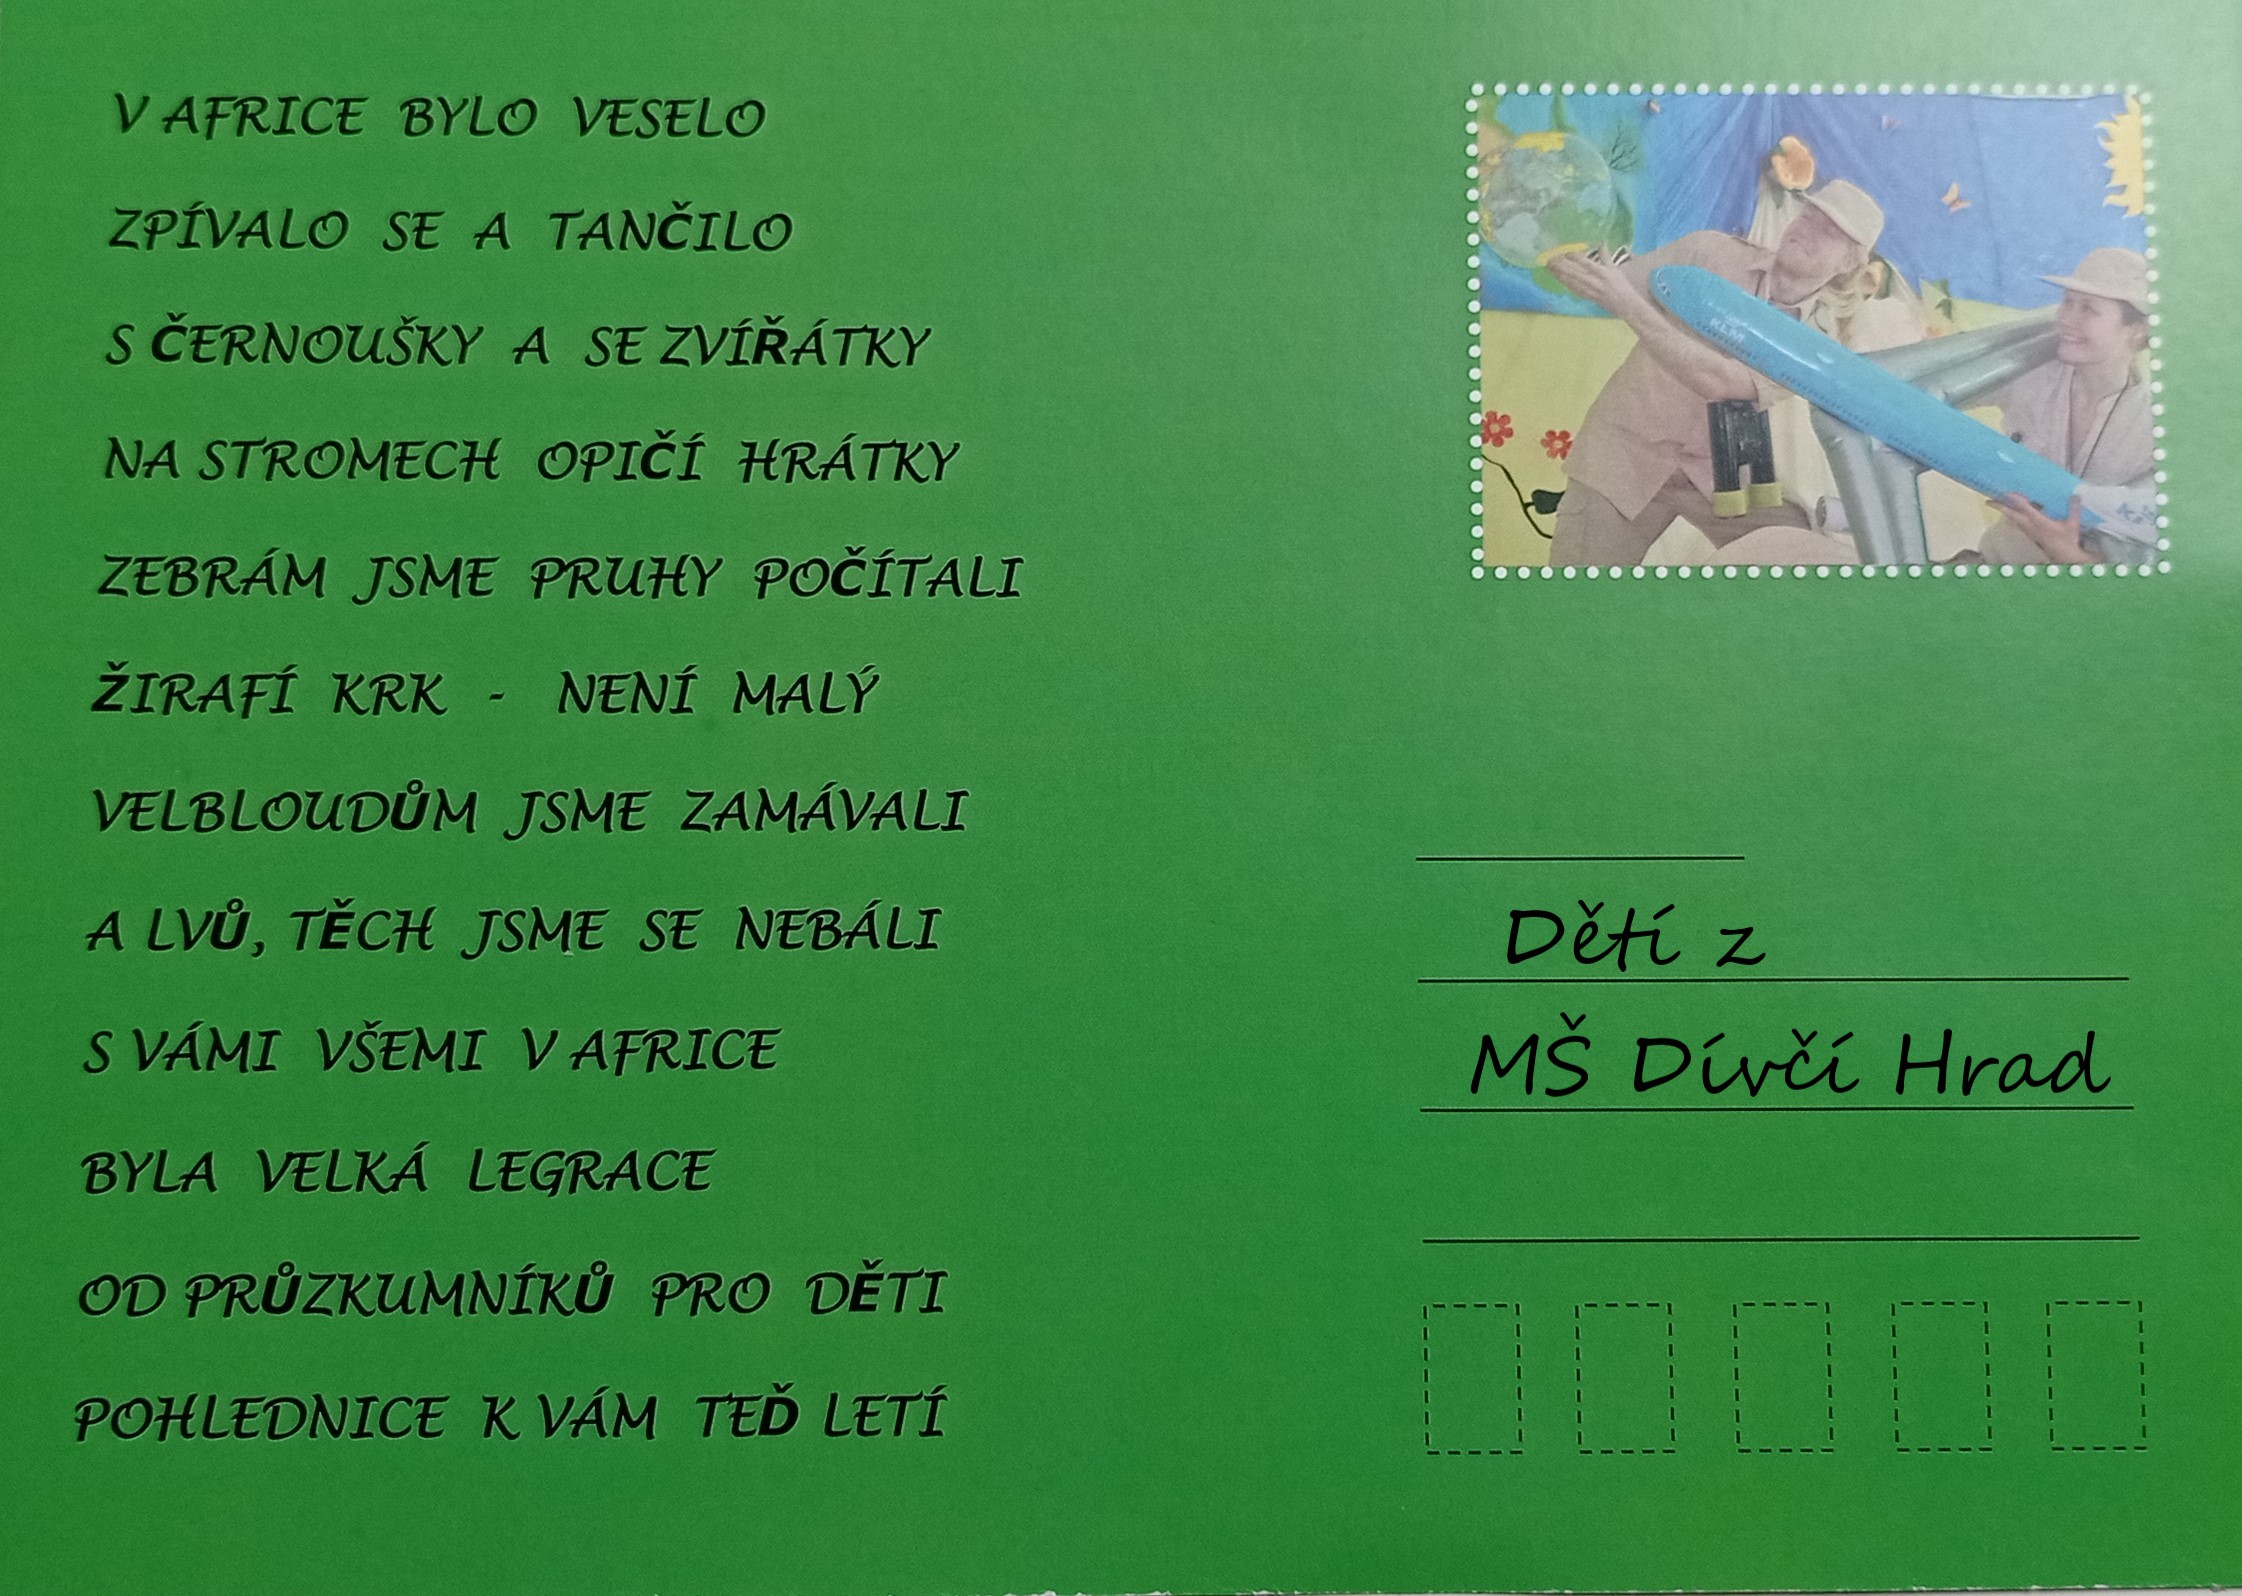 V AFRICE BYLO VESELO
ZPÍVALO SE A TANČILO
S ČERNOUŠKY A SE ZVÍŘÁTKY
NA STROMECH OPIČÍ HRÁTKY
ZEBRÁM JSME PRUHY POČÍTALI
ŽIRAFÍ KRK - NENÍ MALÝ
VELBLOUDŮM JSME ZAMÁVALI
A LVŮ, TĚCH JSME SE NEBÁLI
S VÁMI VŠEMI V AFRICE
BYLA VELKÁ LEGRACE
OD PRŮZKUMNÍKŮ PRO DĚTI
POHLEDNICE K VÁM TEĎ LETÍ
KLM
Děti z
MŠ Dívčí Hrad